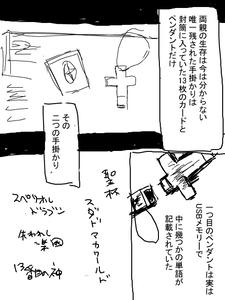 両親の生存は今は分からない
唯一残された手掛かりは
封筒に入っていた13枚のカードと
ペンダントだけ
その
二つの手掛かり
一つ目のペンダントは実は
USBメモリーで
中に幾つかの単語が
記載されていた
聖杯
スダドマカワールド
スペリオル
ドラゴン
失われし
楽園
13番目の神